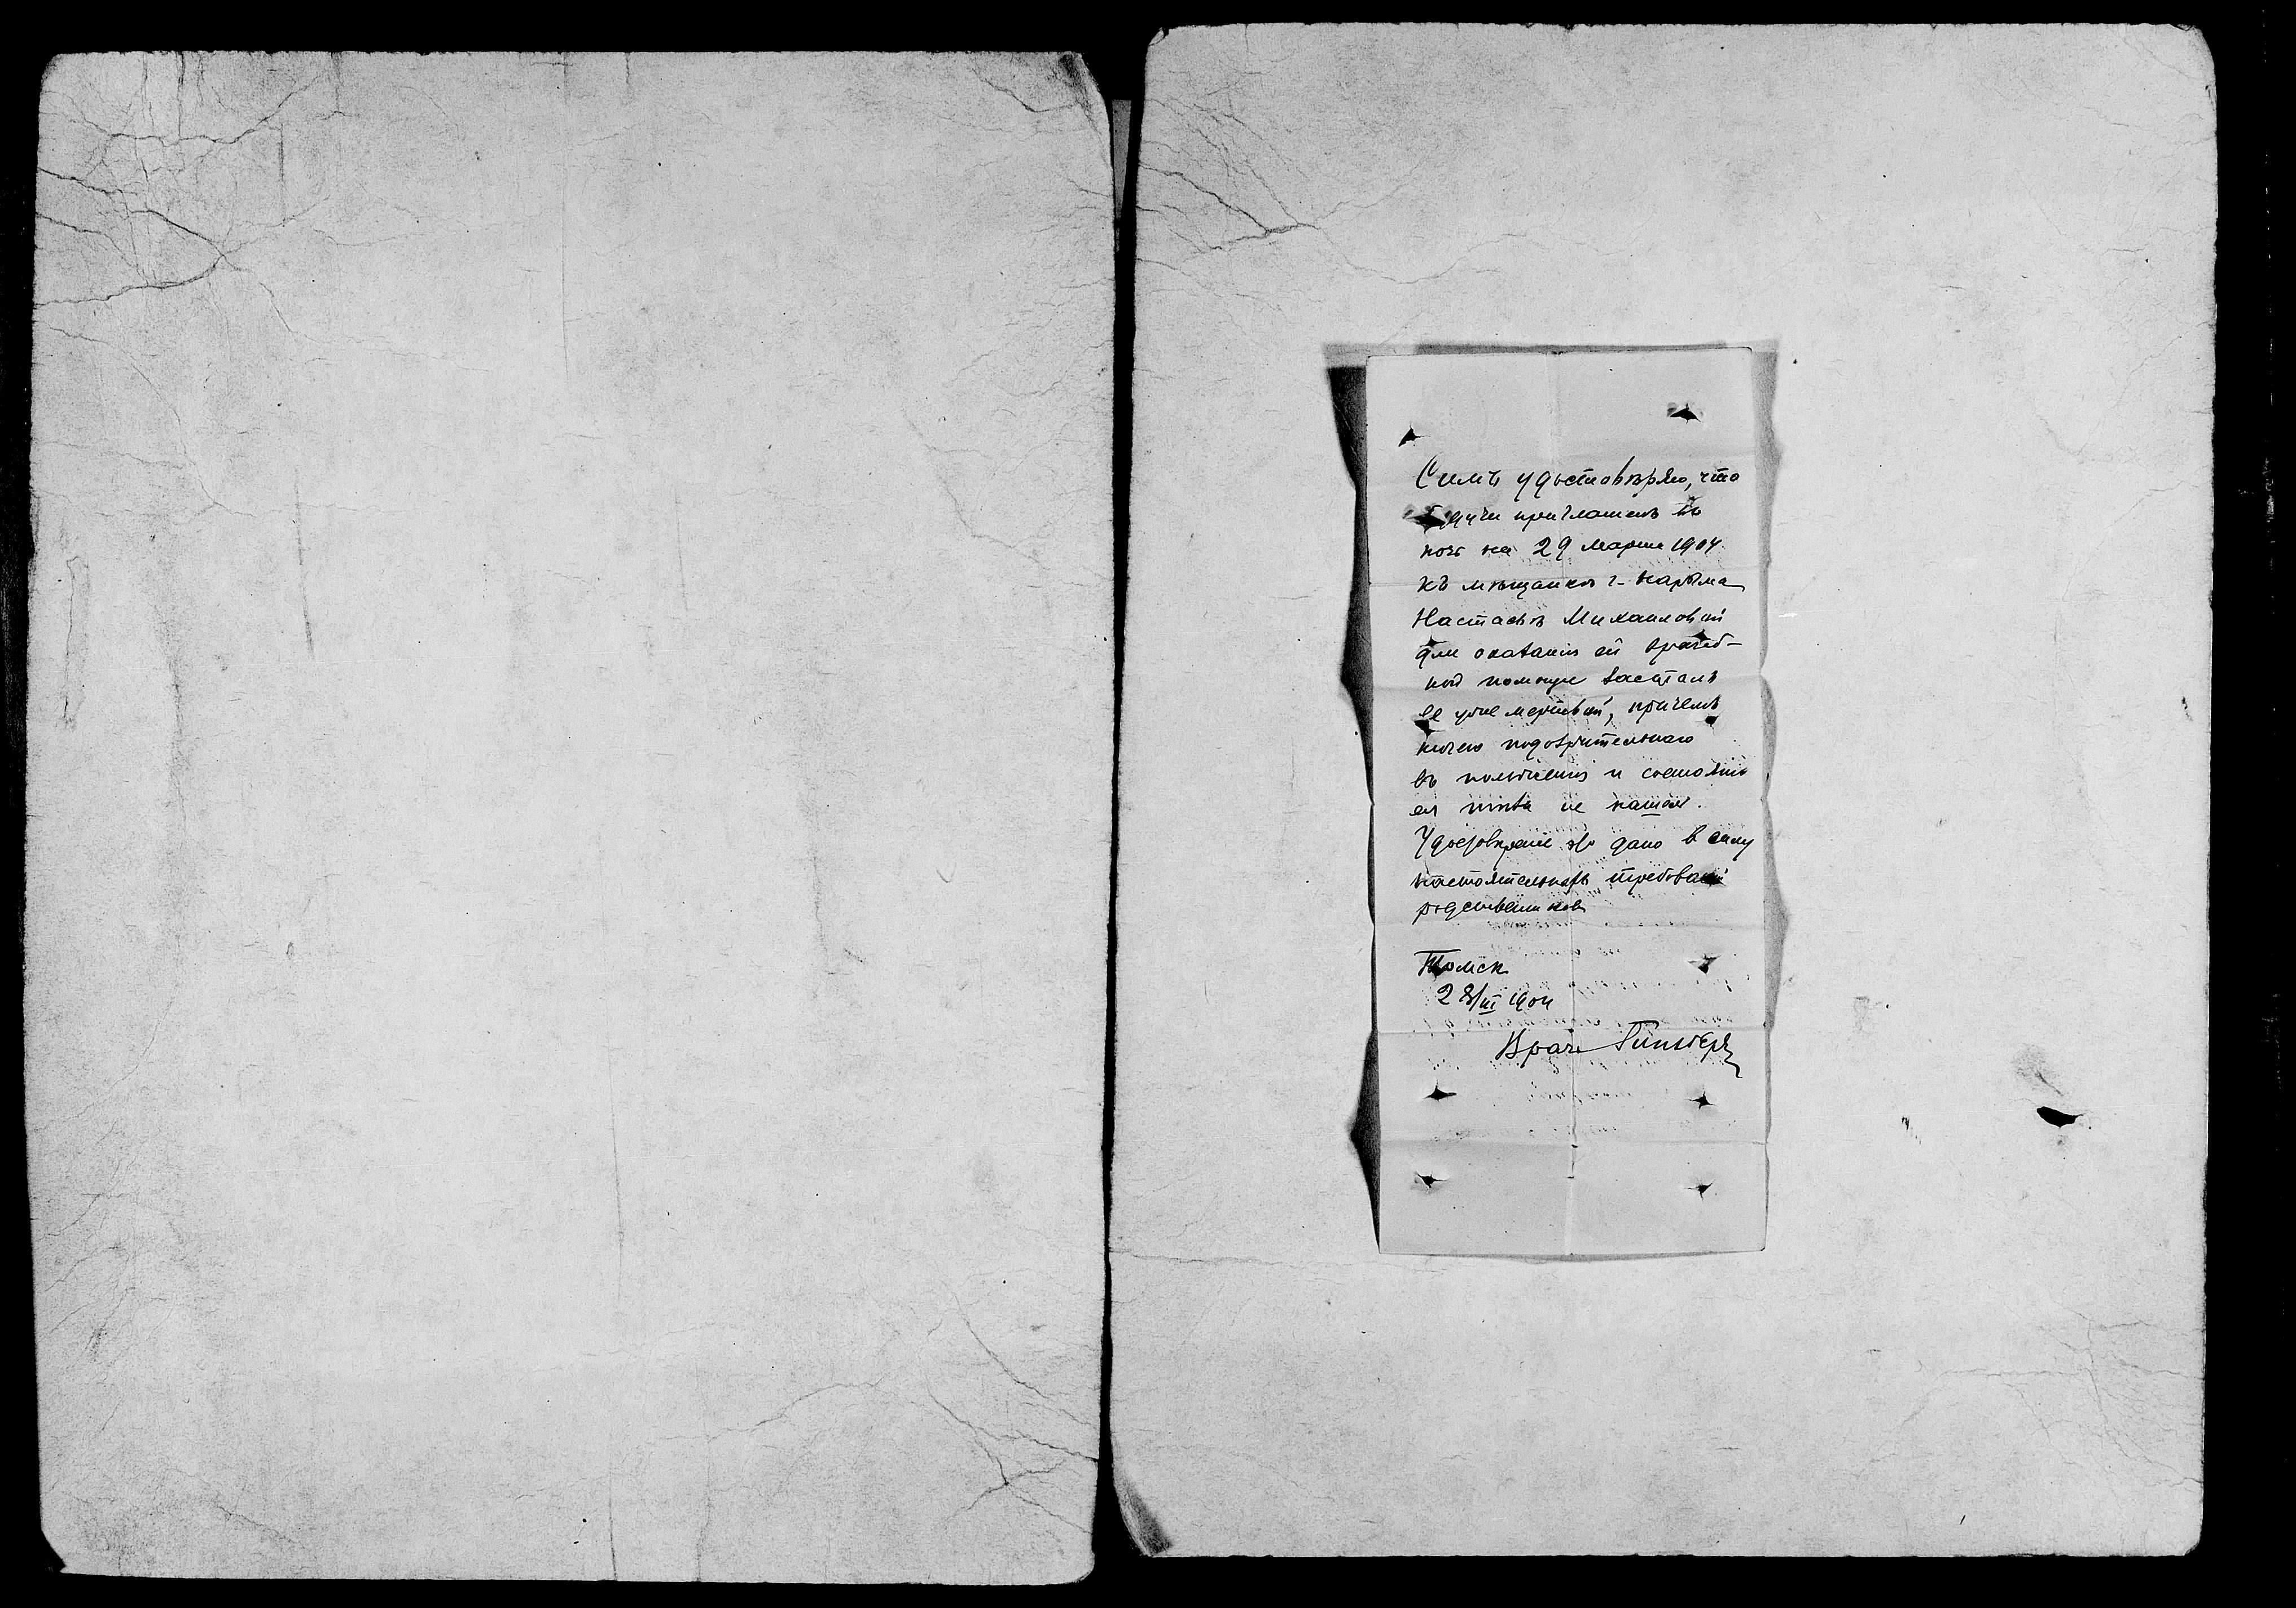 Симъ удостовѣряю, что
будучи приглашенъ въ
ночь на 29 марта 1904
къ мѣщанкѣ г. Нарыма
Настасьѣ Михайловой
для оказанія ей врачеб-
ной помощи засталъ
ее уже мертвой, причемъ
ничего подозрительнаго
въ положеніи и состояніи
ея тѣла не нашелъ.
Удостовѣреніе это дано в силу
настоятельнаго требованія
родственниковъ
Томск
28/III 1904
Врачъ